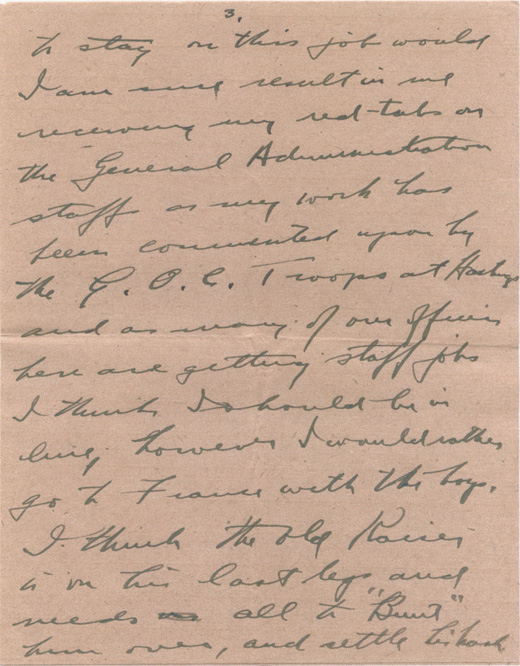 3.
to stay on this job would
I am sure result in me
receiving my red-tabs on
the General Administration
staff as my work has
been commented upon by
the G. O. C. Troops at Hastings
and as many of our officers
here are getting staff jobs
I think I should be in
line, however I would rather
go to France with the boys.
I think the old Kaiser
is on his last legs and
needs all to "Bunt"
him over, and settle his hash